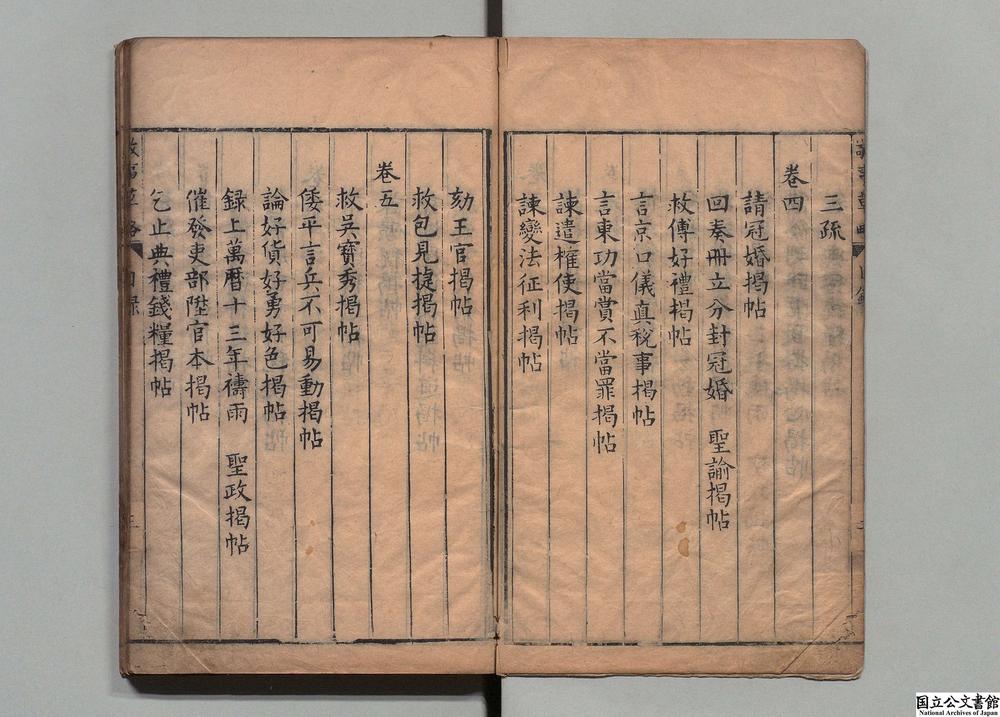 三疏
卷四
請冠婚揭帖
回奏冊立分封冠婚　聖諭揭帖
救傅好禮揭帖
言京口儀真稅事揭帖
言東功當賞不當罪揭帖
諫遣榷使揭帖
諫變法征利揭帖
劾王官揭帖
救包見捷揭帖
卷五
救吳寶秀揭帖
倭平言兵不可易動揭帖
論好貨好勇好色揭帖
録上萬曆十三年禱雨　聖政揭帖
催發吏部陞官本揭帖
乞止典禮錢糧揭帖
敬事草略
目録
三
国立公文書館
National Archives of Japan